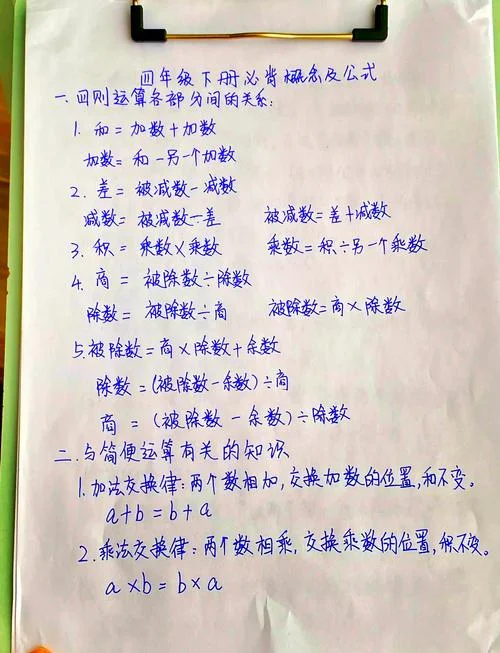 四年级下册必背概念及公式
一.四则运算各部分间的关系:
1. 和=加数+加数
加数=和-另一个加数
2. 差=被减数-减数
减数=被减数-差 被减数=差+减数
3. 积=乘数×乘数 乘数=积÷另一个乘数
4. 商=被除数÷除数
除数=被除数÷商 被除数=商×除数
5 被除数=商×除数+余数
除数=(被除数-余数)÷商
商=(被除数-余数)÷除数
二.与简便运算有关的知识
1.加法交换律:两个数相加,交换加数的位置,和不变。
a+b=b+a
2.乘法交换律:两个数相乘,交换乘数的位置,积不变。
a×b=b×a